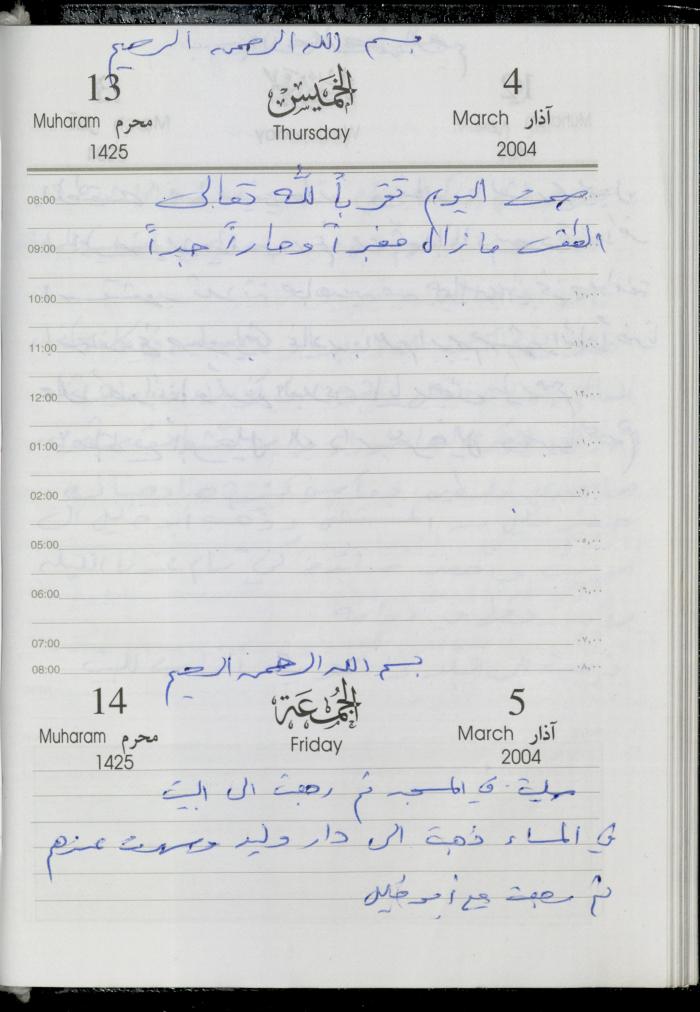 بسم الله الرحمن الرحيم
13 الخميس 4
Muharam محرم Thursday March آذار
1425 2004
08:00 صمت اليوم تقرباً لله تعالى
09:00 الطقس ما زال مغبراً وحاراً جداً
10:00 ١٠,٠٠
11:00 ١١,٠٠
12:00 ١٢,٠٠
01:00 ٠١,٠٠
02:00 ٠٢,٠٠
05:00 ٠٥,٠٠
06:00 ٠٦,٠٠
07:00 ٠٧,٠٠
08:00 بسم الله الرحمن الرحيم ٠٨,٠٠
14 الجمعة 5
Muharam محرم Friday March آذار
1425 2004
صليت في المسجد ثم رجعت الى البيت
في المساء ذهبت الى دار وليد وسهرت عندهم
ثم رجعت مع أبو خليل